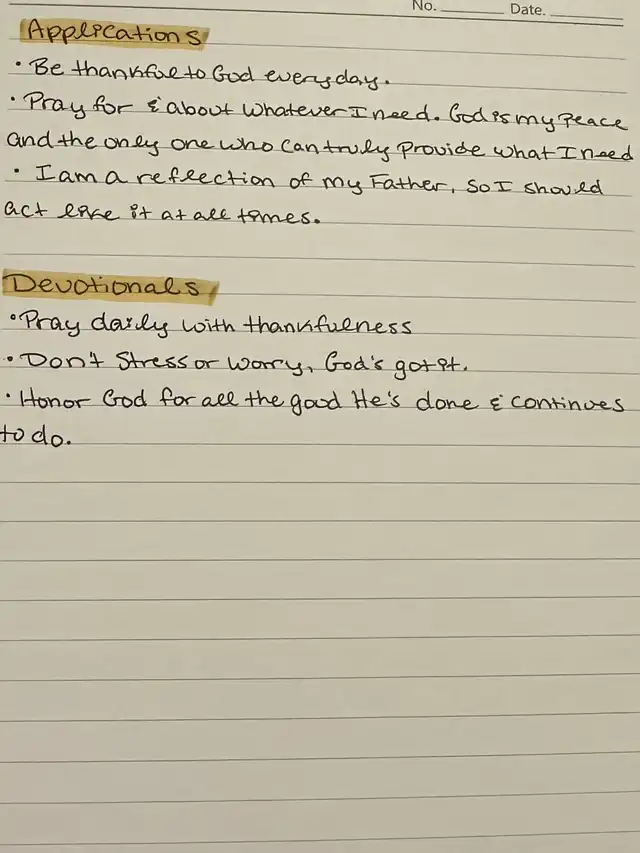 No. ______ Date. ______
Applications
• Be thankful to God everyday.
• Pray for & about whatever I need. God is my peace
and the only one who can truly provide what I need
• I am a reflection of my Father, so I should
act like it at all times.
Devotionals
• Pray daily with thankfulness
• Don't stress or worry, God's got it.
• Honor God for all the good He's done & continues
to do.